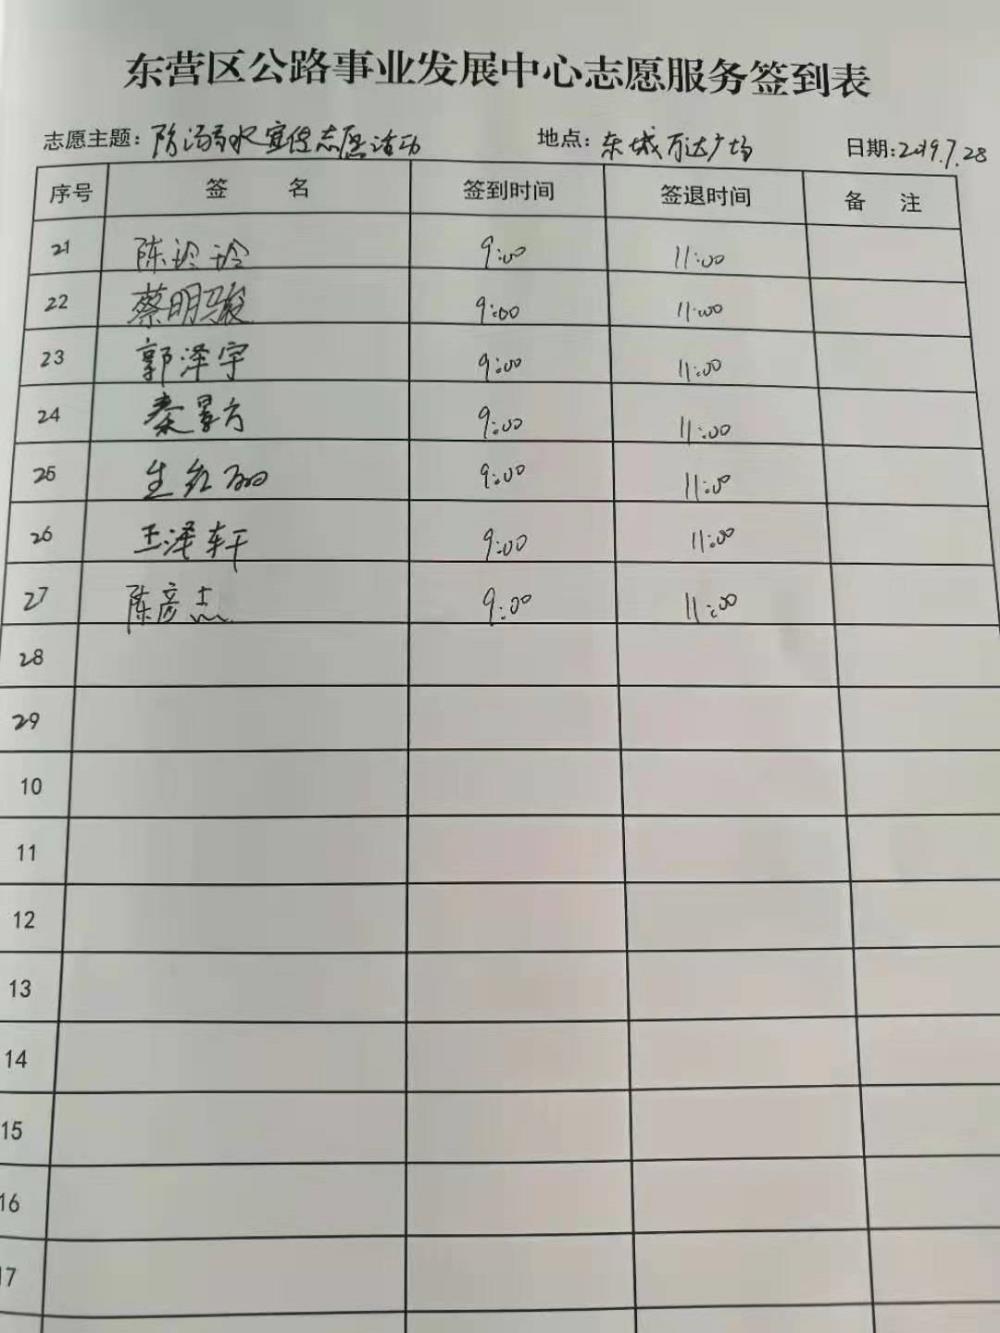 东营区公路事业发展中心志愿服务签到表
志愿主题：防溺水宣传志愿活动 地点：东城万达广场 日期：2019.7.28
序号 签 名 签到时间 签退时间 备 注
21 陈玲玲 9:00 11:00
22 蔡明骏 9:00 11:00
23 郭泽宇 9:00 11:00
24 秦景方 9:00 11:00
25 生红丽 9:00 11:00
26 王泽轩 9:00 11:00
27 陈彦杰 9:00 11:00
28
29
10
11
12
13
14
15
16
17